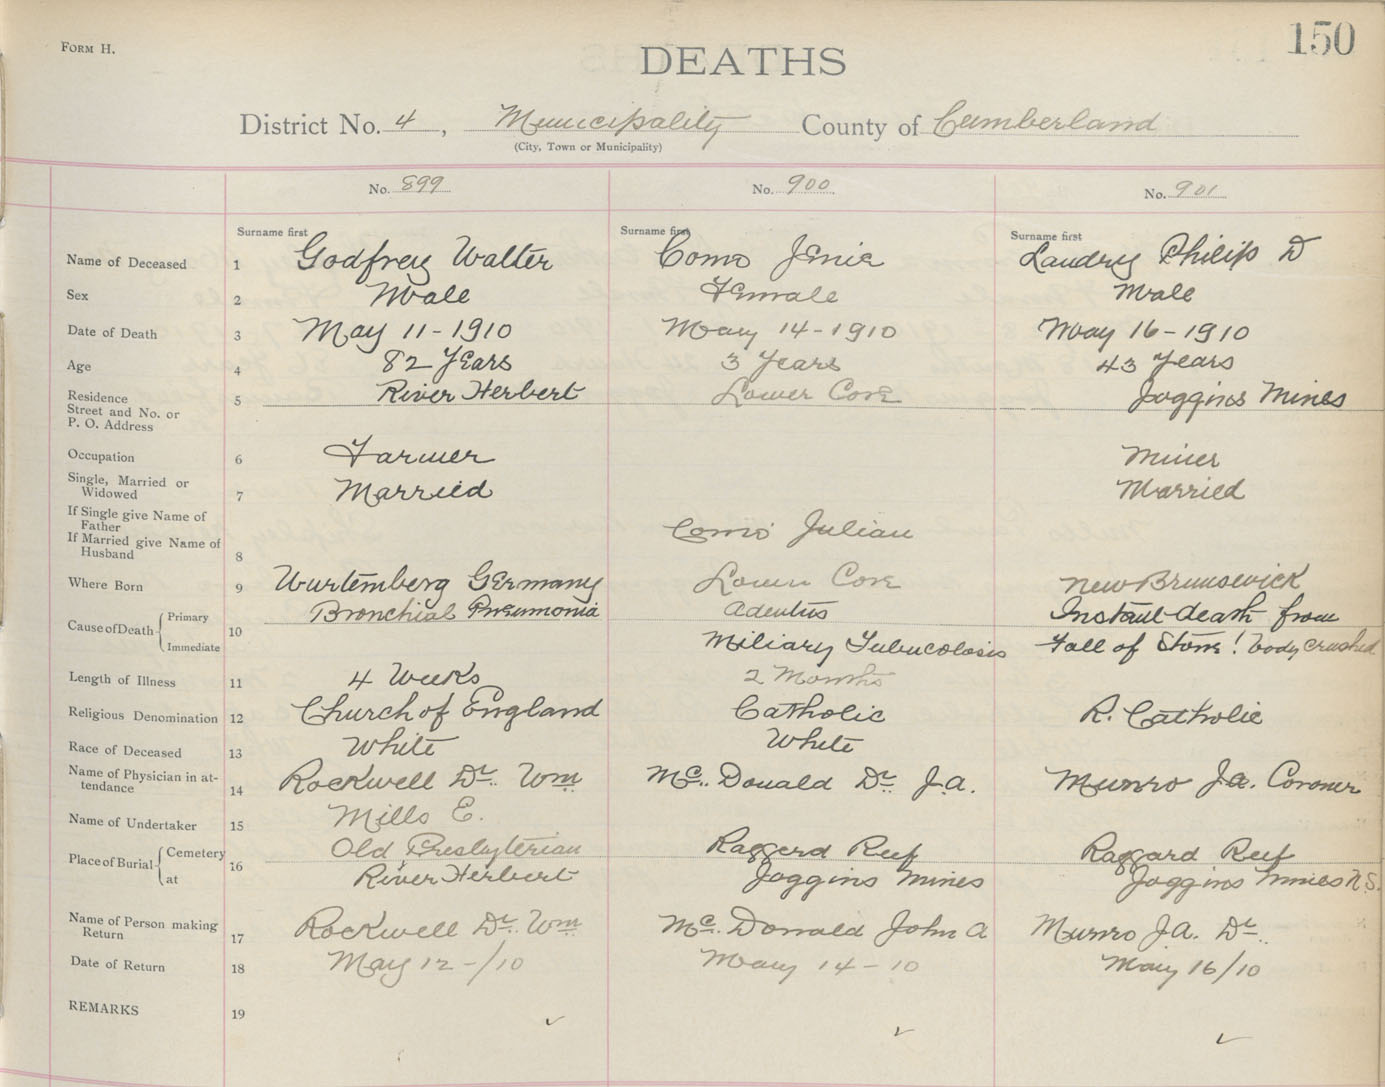 FORM H.
150
DEATHS
District No. 4, Municipality County of Cumberland
(City, Town or Municipality)
No. 899 No. 900 No. 901
Surname first Surname first Surname first
Name of Deceased 1 Godfrey Walter Como Jenie Landry Philip D
Sex 2 Male Female Male
Date of Death 3 May 11-1910 May 14-1910 May 16-1910
Age 4 82 Years 3 Years 43 Years
Residence
Street and No. or
P. O. Address 5 River Herbert Lower Cove Joggins Mines
Occupation 6 Farmer Miner
Single, Married or
Widowed 7 Married Married
If Single give Name of
Father
If Married give Name of
Husband 8 Como Julian
Where Born 9 Wurtemberg Germany Lower Cove New Brunswick
Cause of Death 10
Primary Bronchial Pneumonia Instant death from
Immediate Miliary Tubucolosis Fall of Stone! body crushed
Length of Illness 11 4 Weeks 2 Months
Religious Denomination 12 Church of England Catholic R. Catholic
Race of Deceased 13 White White
Name of Physician in at-
tendance 14 Rockwell Dr. Wm Mc. Donald Dr. J.A. Munro J.A. Coroner
Name of Undertaker 15 Mills E.
Place of Burial 16
Cemetery Old Presbyterian Raggerd Reef Raggard Reef
at River Herbert Joggins Mines Joggins Mines N.S.
Name of Person making
Return 17 Rockwell Dr. Wm Mc. Donald John A Munro J.A. Dr.
Date of Return 18 May 12-/10 May 14-10 May 16/10
REMARKS 19